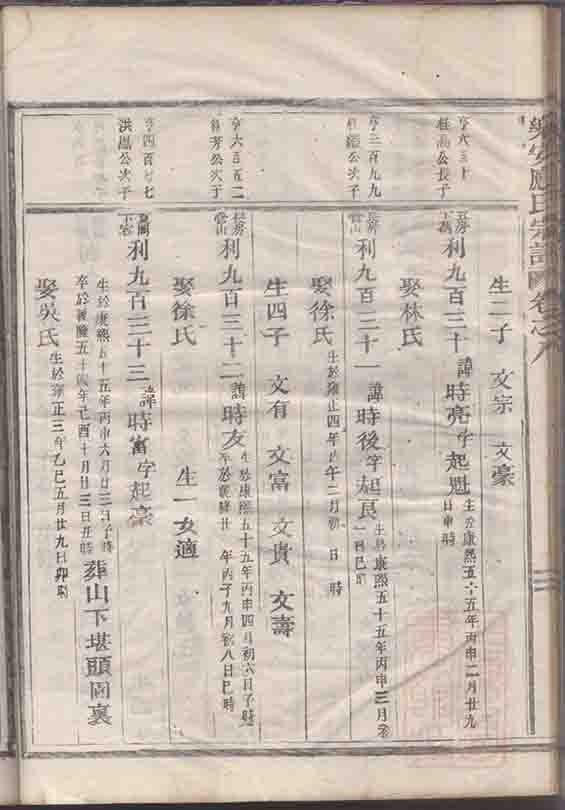 應氏宗譜 卷之八
生二子 文宗 文豪
亨六百十
桂高公長子
利九百三十 諱時亮字起魁 生於康熙五十五年丙申二月廿九日申時
娶林氏
亨三百九九
公次子
利九百三十一 諱時後字起良 生於康熙五十五年丙申三月
娶徐氏 生於雍正四年丙午二月初 日 時
生四子 文有 文富 文貴 文壽
亨六百五二
芳公次子
利九百三十二 諱時友 生於康熙五十五年丙申四月初六日子時 卒於乾隆廿 年丙子九月初八日巳時
娶徐氏 生一女適
亨四百七七
洪鳳公次子
利九百三十三 諱時富字起豪 生於康熙五十五年丙申六月廿三日子時 卒於乾隆五十四年己酉十月廿三日丑時 葬山下堪頭園裏
娶吳氏 生於雍正三年乙巳五月廿九日卯時